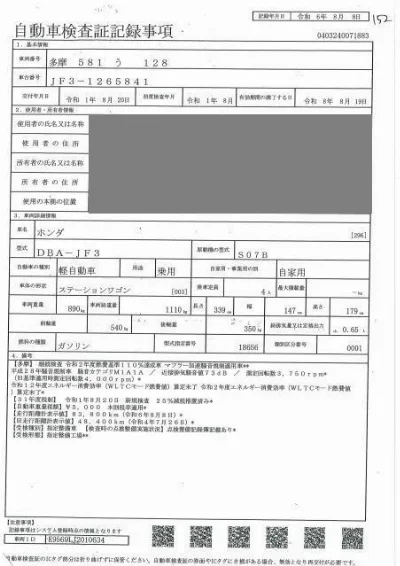 記録年月日 令和 6年 8月 8日
152
自動車検査証記録事項
0403240071883
1. 基本情報
車両番号 多摩 581 う 128
車台番号 JF3-1265841
交付年月日 令和 1年 8月 20日 初度検査年月 令和 1年 8月 有効期間の満了する日 令和 8年 8月 19日
2. 使用者・所有者情報
使用者の氏名又は名称
使用者の住所
所有者の氏名又は名称
所有者の住所
使用の本拠の位置
3. 車両詳細情報
車名 ホンダ [296]
型式 DBA-JF3 原動機の型式 S07B
自動車の種別 軽自動車 用途 乗用 自家用・事業用の別 自家用
車体の形状 ステーションワゴン [003] 乗車定員 4人 最大積載量 -kg
車両重量 890kg 車両総重量 1110kg 長さ 339cm 幅 147cm 高さ 179cm
前軸重 540kg 後軸重 350kg 総排気量又は定格出力 0.65L
燃料の種類 ガソリン 型式指定番号 18656 類別区分番号 0001
4. 備考
【多摩】 継続検査 令和2年度燃費基準110%達成車 マフラー加速騒音規制適用車**
平成28年騒音規制車 騒音カテゴリM1A1A / 近接排気騒音値73dB / 測定回転数3,750rpm**
令和12年度エネルギー消費効率(WLTCモード燃費値)算定未了 令和2年度エネルギー消費効率(WLTCモード燃費値
)算定未了*
【自動車重量税額】 ¥5,000 本則税率適用*
【走行距離計表示値】 63,800km(令和6年8月8日)
【旧走行距離計表示値】 48,400km(令和4年7月26日)*
【受検種別】指定整備車 【検査時の点検整備実施状況】点検整備記録簿記載あり*
【受検形態】指定整備工場**
【注意事項】
記録事項はシステム登録時点の情報となります
車両ID E9569LJ2010634
自動車検査証のICタグ部分は折り曲げずに保管ください。自動車検査証の券面やICタグにき損がある場合、無効となり再交付が必要です。